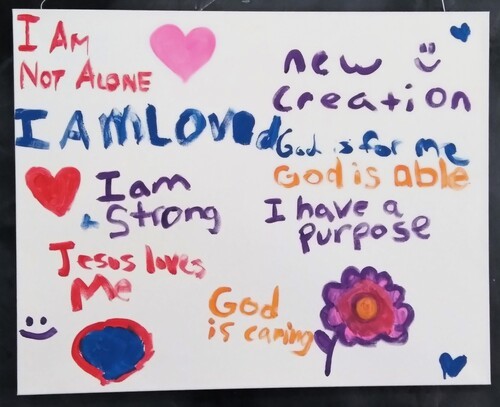 I AM
NOT ALONE
I AM LOVed
I am
Strong
Jesus loves
Me
new
creation
God is for me
God is able
I have a
purpose
God
is caring